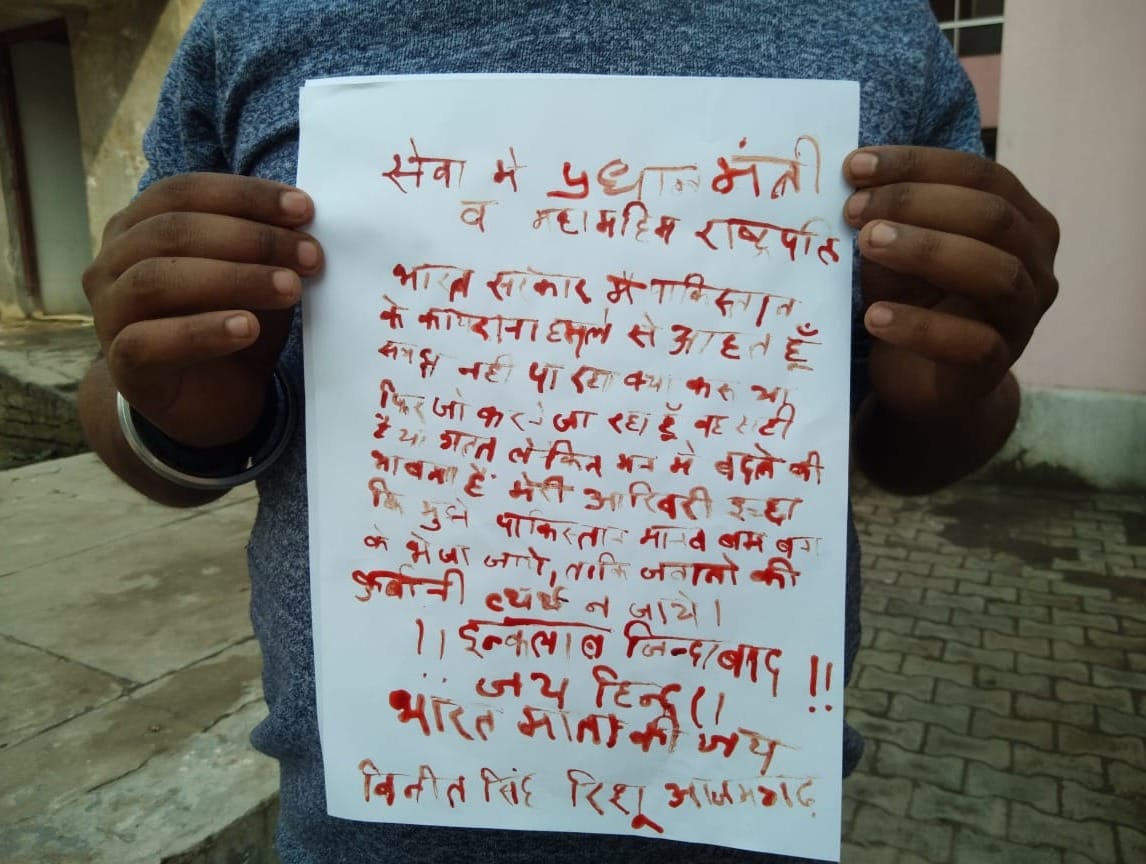 सेवा मे प्रधान मंत्री
व महामहिम राष्ट्रपति
भारत सरकार मै पाकिस्तान
के कायराना हमले से आहत हूँ
समझ नही पा रहा क्या करु या
फिर जो करने जा रहा हूँ वह सही
है या गलत लेकिन मन मे बदले की
भावना है मेरी आखिरी इच्छा
कि मुझे पाकिस्तान मानव बम बना
के भेजा जाये, ताकि जवानो की
कुर्बानी व्यर्थ न जाये।
।। इन्कलाब जिन्दाबाद !!
जय हिन्द ।।
भारत माता की जय
विनीत सिंह रिशू आजमगढ़